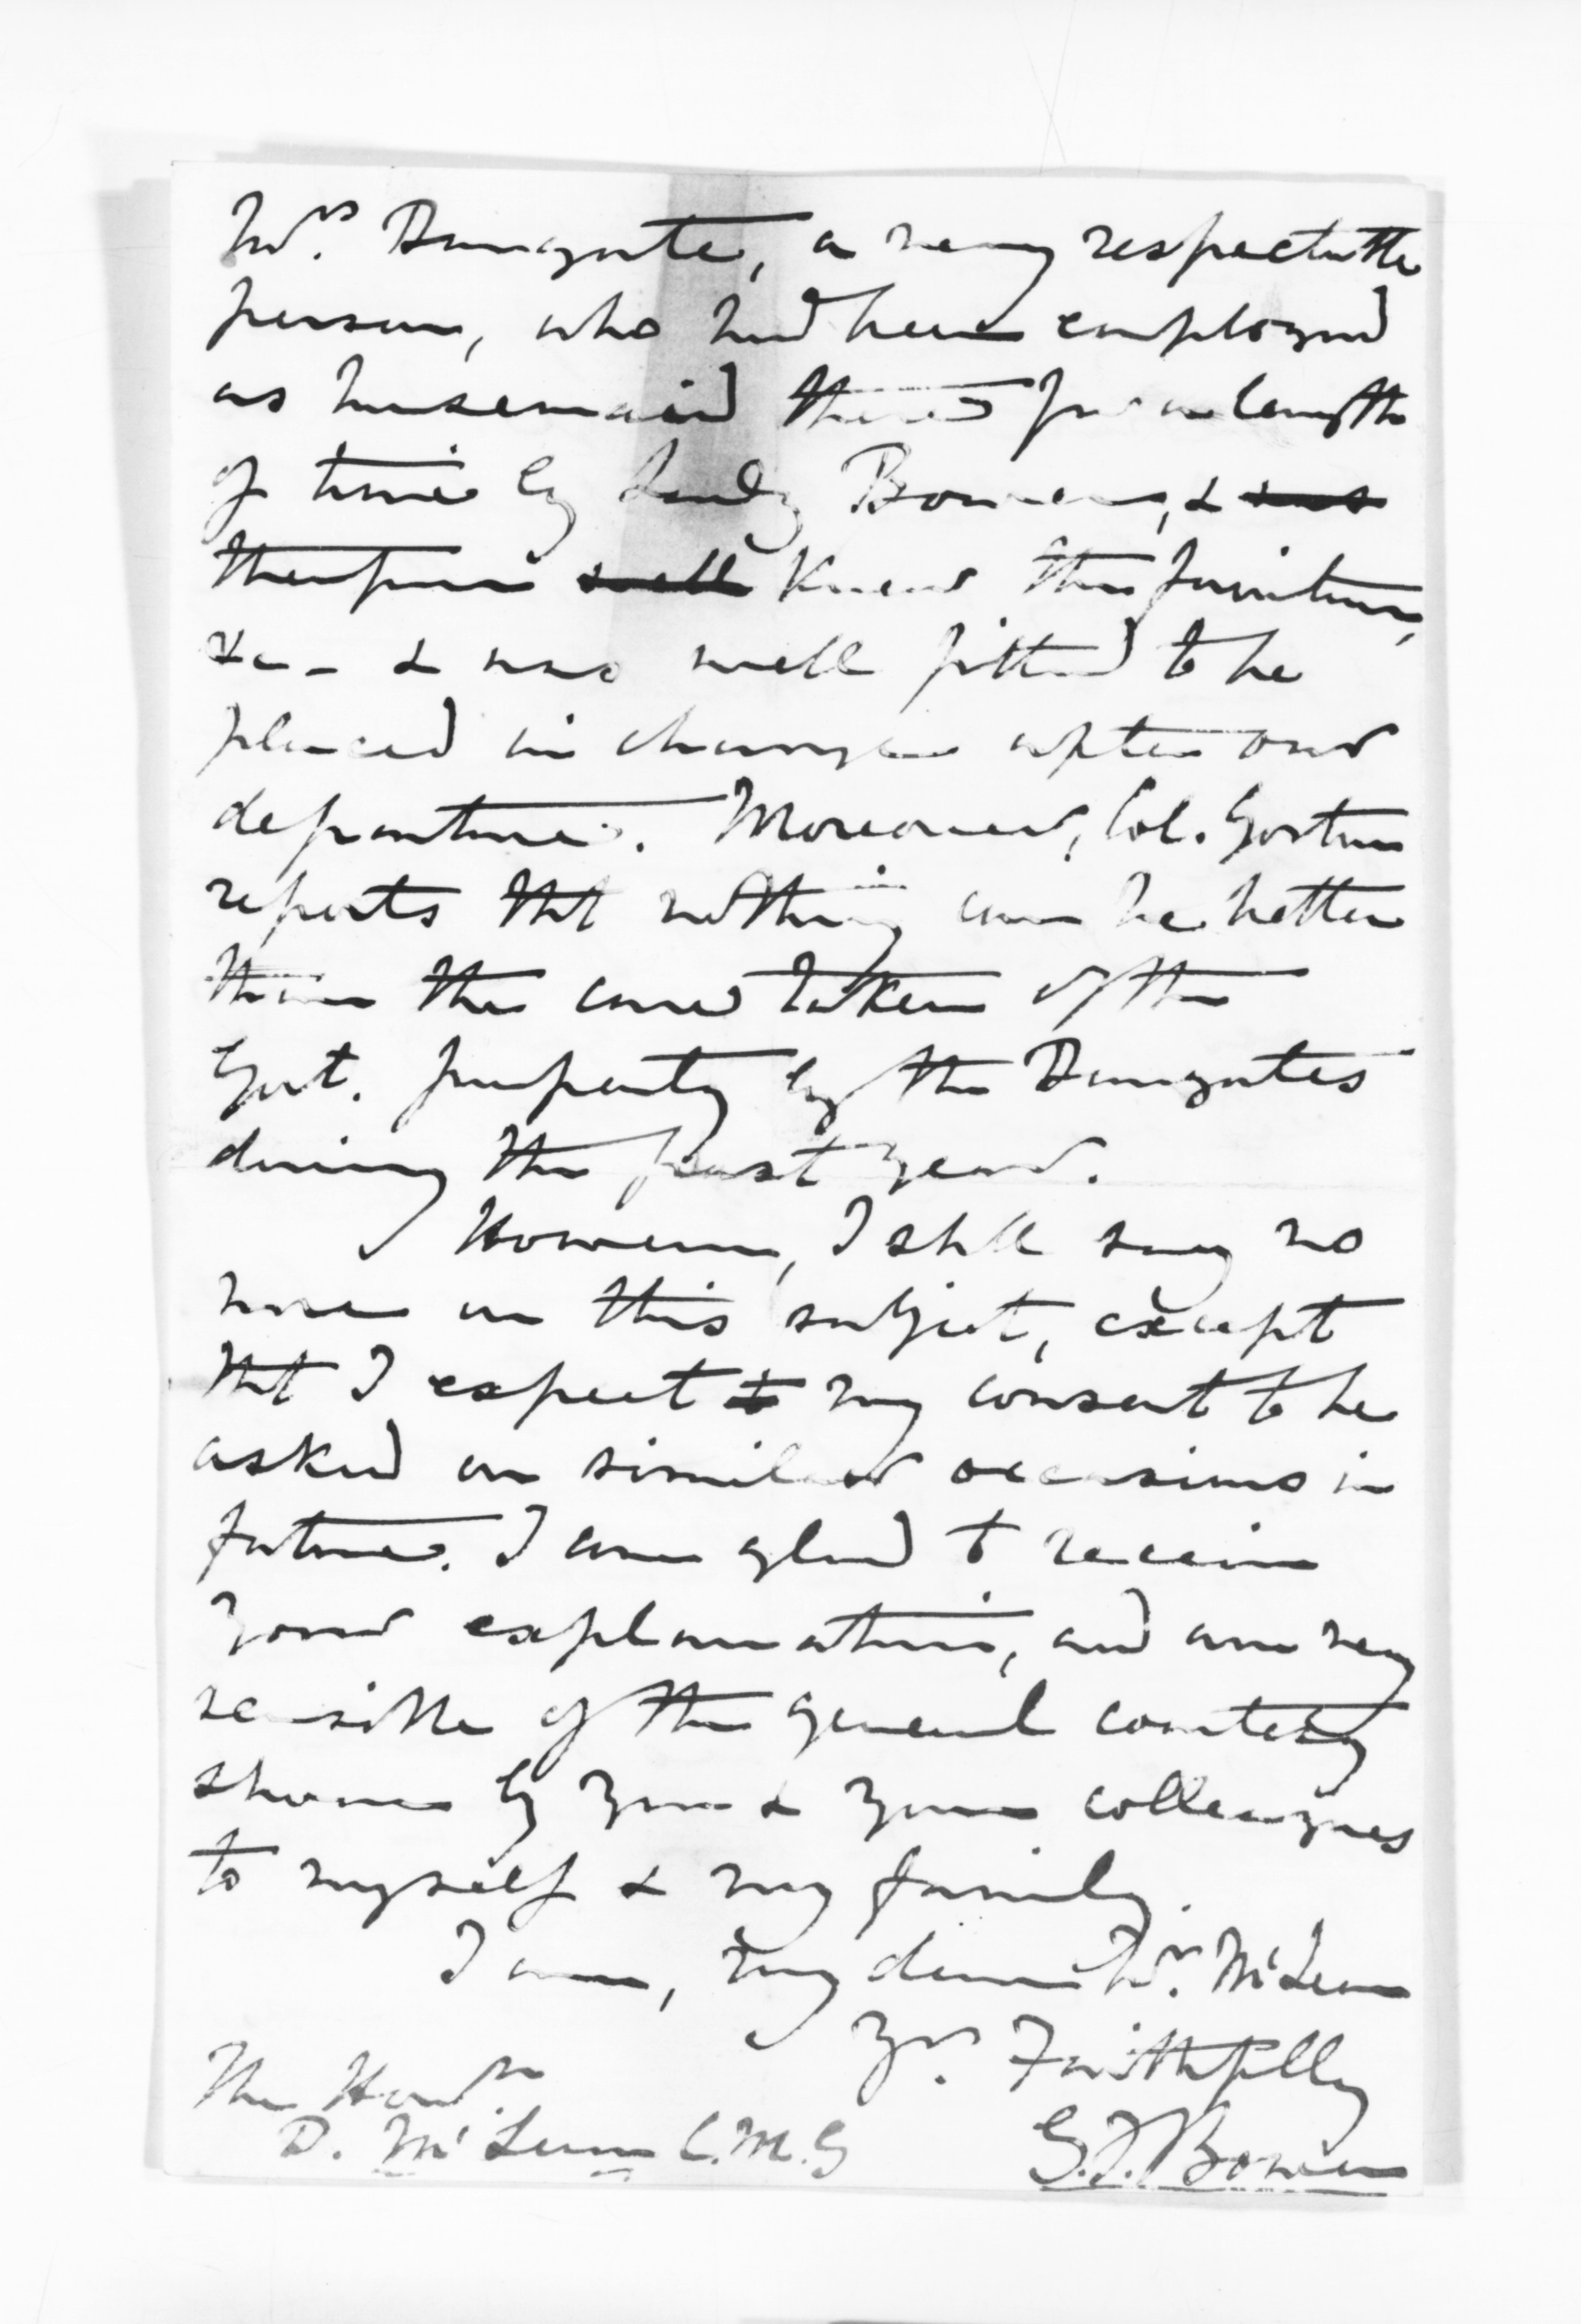 Mrs. Dungate, a very respectable
person, who had been employed
as housemaid there for a length
of time by Lady Bowen, & was
therefore well knew the furniture,
&c - & was well fitted to be
placed in charge after our
departure. Moreover, Col. Gorton
reports tht nothing can be better
than the care taken of the
Govt. property by the Dungates
during the past year.
However, I shll say no
more on this subject, except
tht I expect to my consent to be
asked on similar occasions in
future. I am glad to receive
your explanation, and am very
sensible of the general courtesy
shown by you & your colleagues
to myself & my family.
I am, my dear Mr. McLean
Yrs. Faithfully
The Honble
D. McLean C.M.G
G.F. Bowen